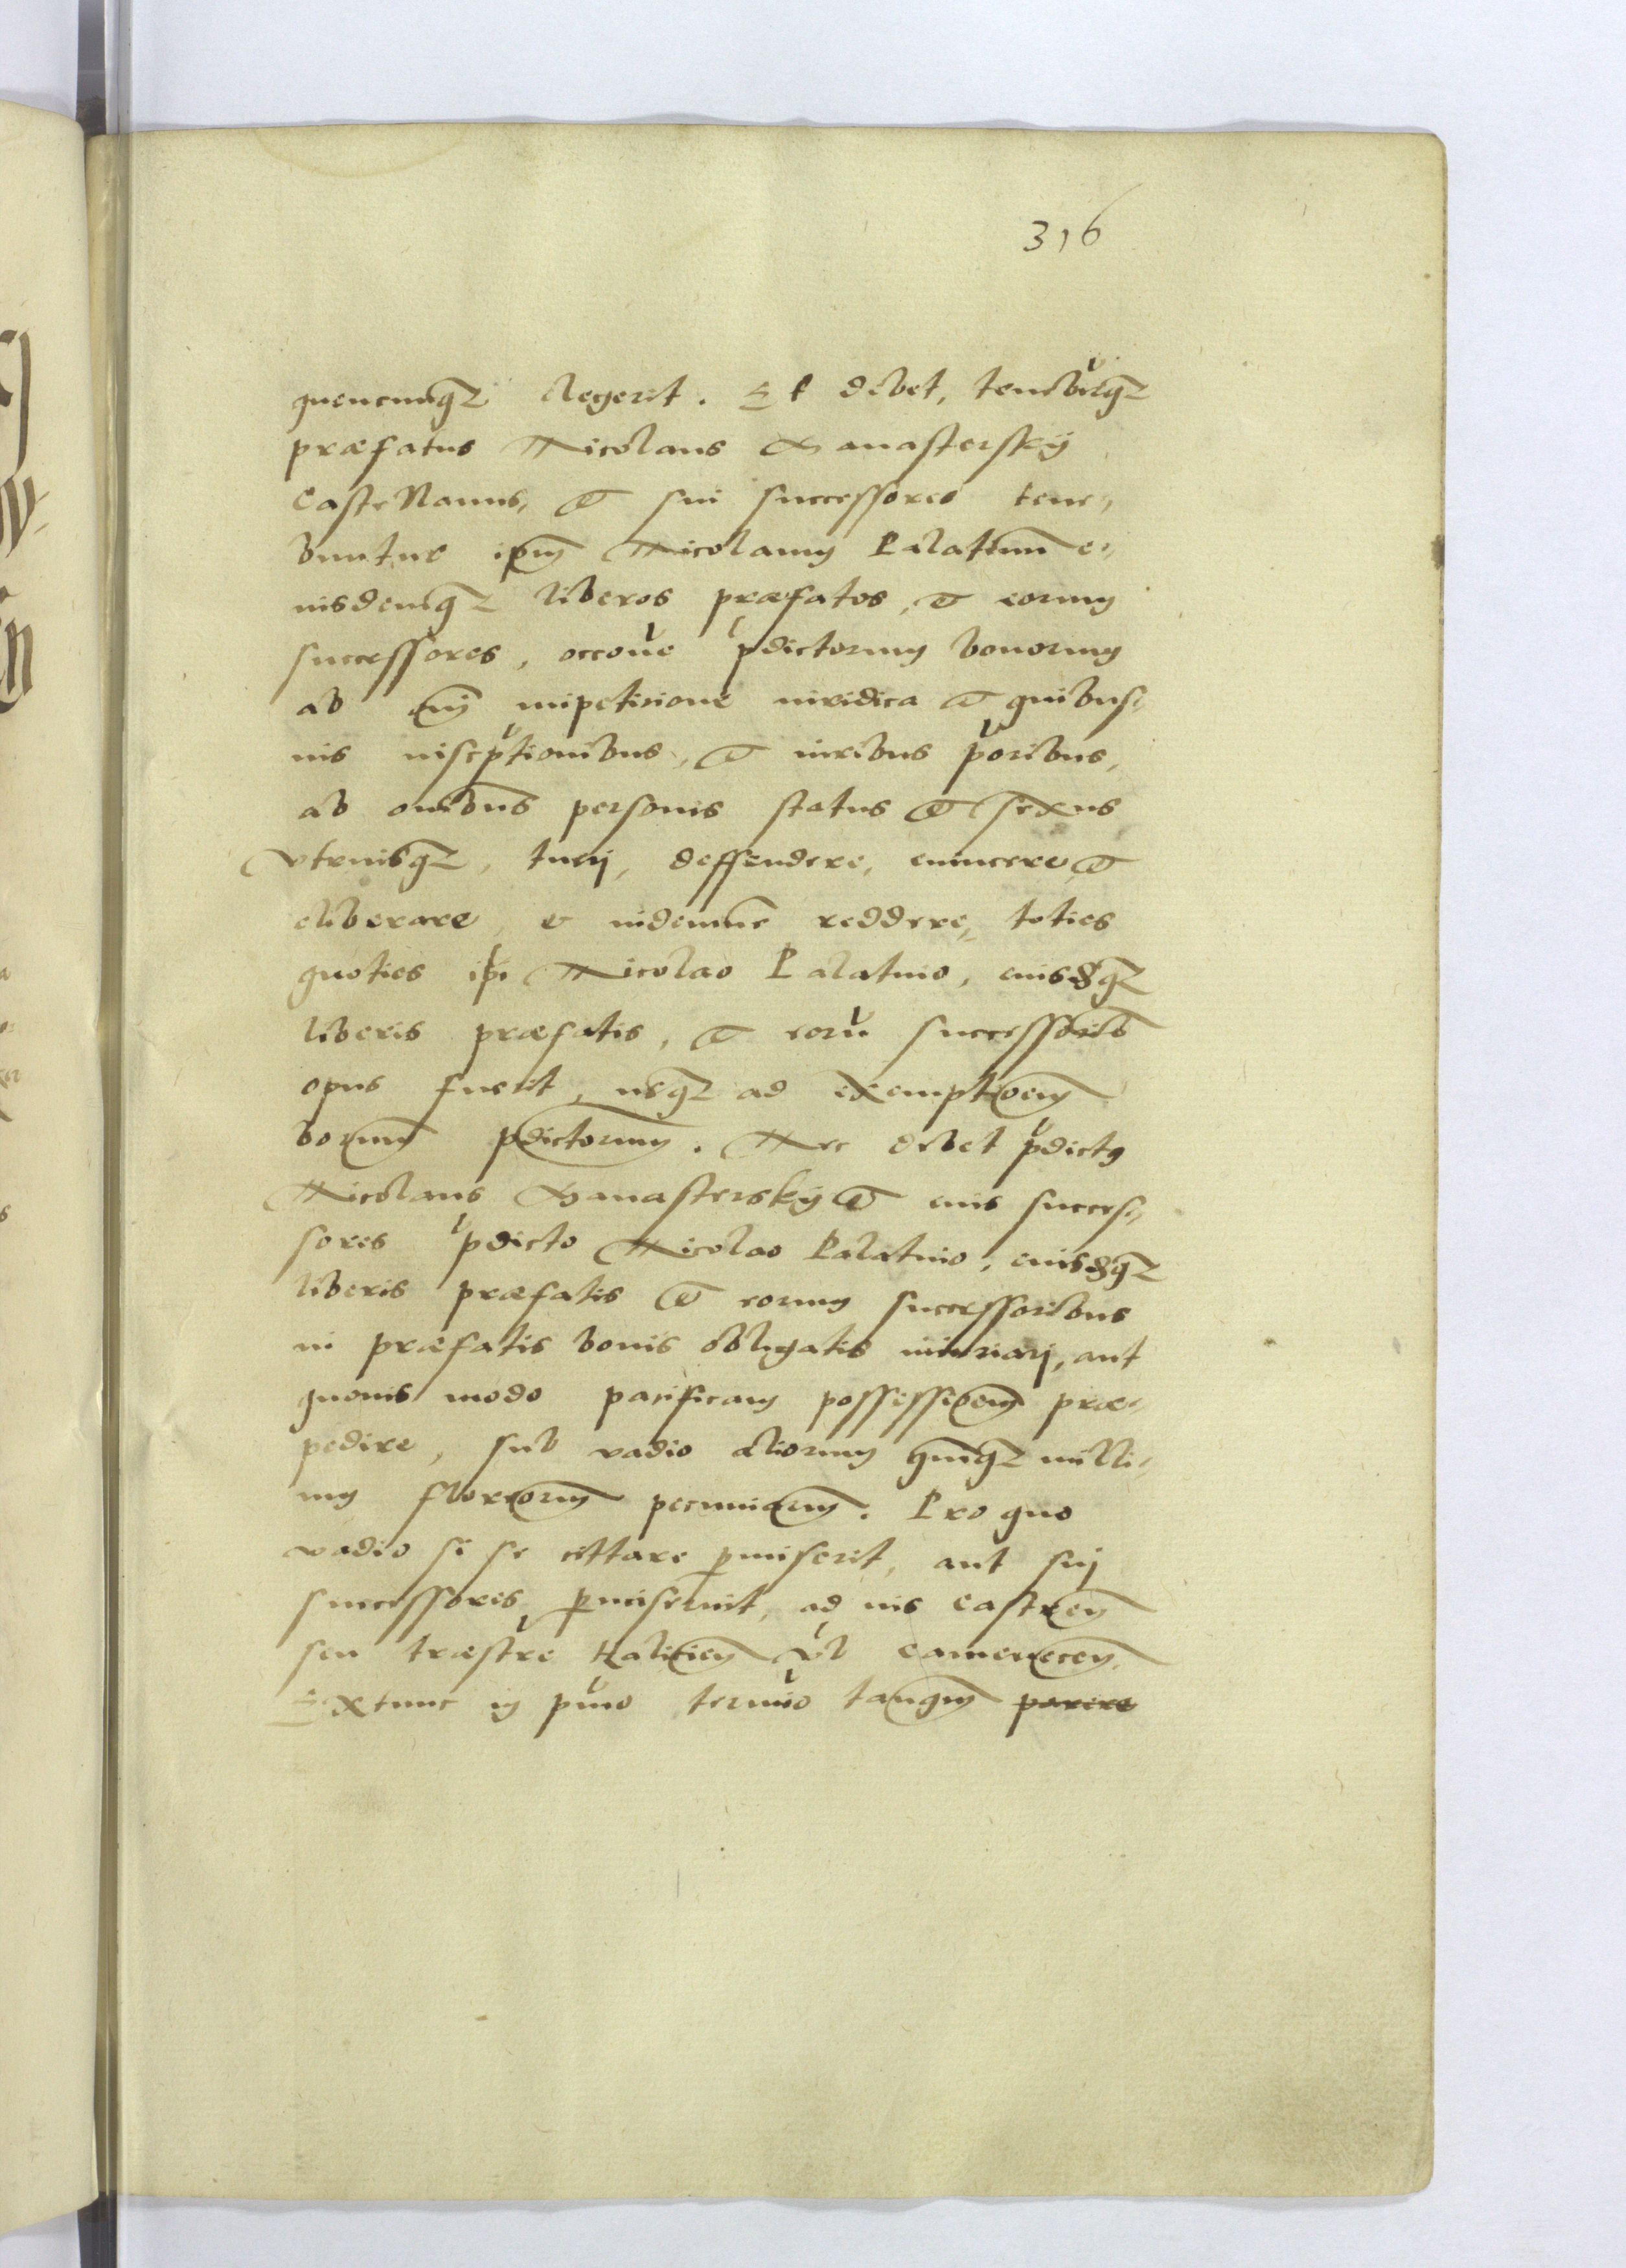 316
quencunq₃ elegerit. Et debet, tenebitq₃
præfatus Nicolaus Sanasterskÿ
Castellanus, et sui successores tene„
buntur ipm Nicolaum Palatinum e„
iusdemq₃ liberos præfatos, et eorum
successores, occoe pdictorum bonorum
ab omni impeticione iuridica et quibus„
uis inscptionibus, et iuribus prioribus,
ab omibus personis status et sexus
vtriusq₃, tueri, deffendere, euincere, et
eliberare, et indemne reddere, toties
quoties ipi Nicolao Palatino, eiusdq₃
liberis præfatis, et eoru successorib
opus fuerit, usq₃ ad exemptoem
borum pdictorum. Nec debet pdictus
Nicolaus Sanasterskÿ et eius succes„
sores pdicto Nicolao Palatino, eiusdq₃
liberis præfatis et eorum successoribus
in præfatis bonis obligatis iniuriari, aut
quouis modo pacificam possessioem præ„
pedire, sub vadio aliorum quinq₃ milli„
um florenorum pecuniarum. Pro quo
vadio si se cittare pmiserit, aut sui
successores pmiserint, ad ius castren
seu træstre Halicien vl camenecen.
Extunc in pmo termio tanqm parere